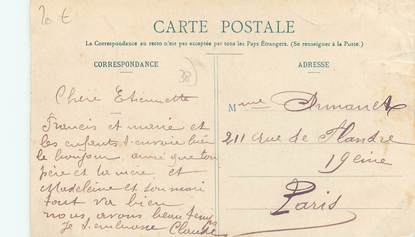 20 €
CARTE POSTALE
La Correspondance au recto n'est pas acceptée par tous les Pays Étrangers. (Se renseigner à la Poste.)
CORRESPONDANCE
38
Chère Etiennette
Francis et marie et
les enfants t'envoie bien
le bonjour ainsi que ton
père et ta mère et
Madeleine et son mari
tout va bien
nous avons beau temps
Je t'embrasse Claude
ADRESSE
Mme
211 rue de Flandre
19eme
Paris